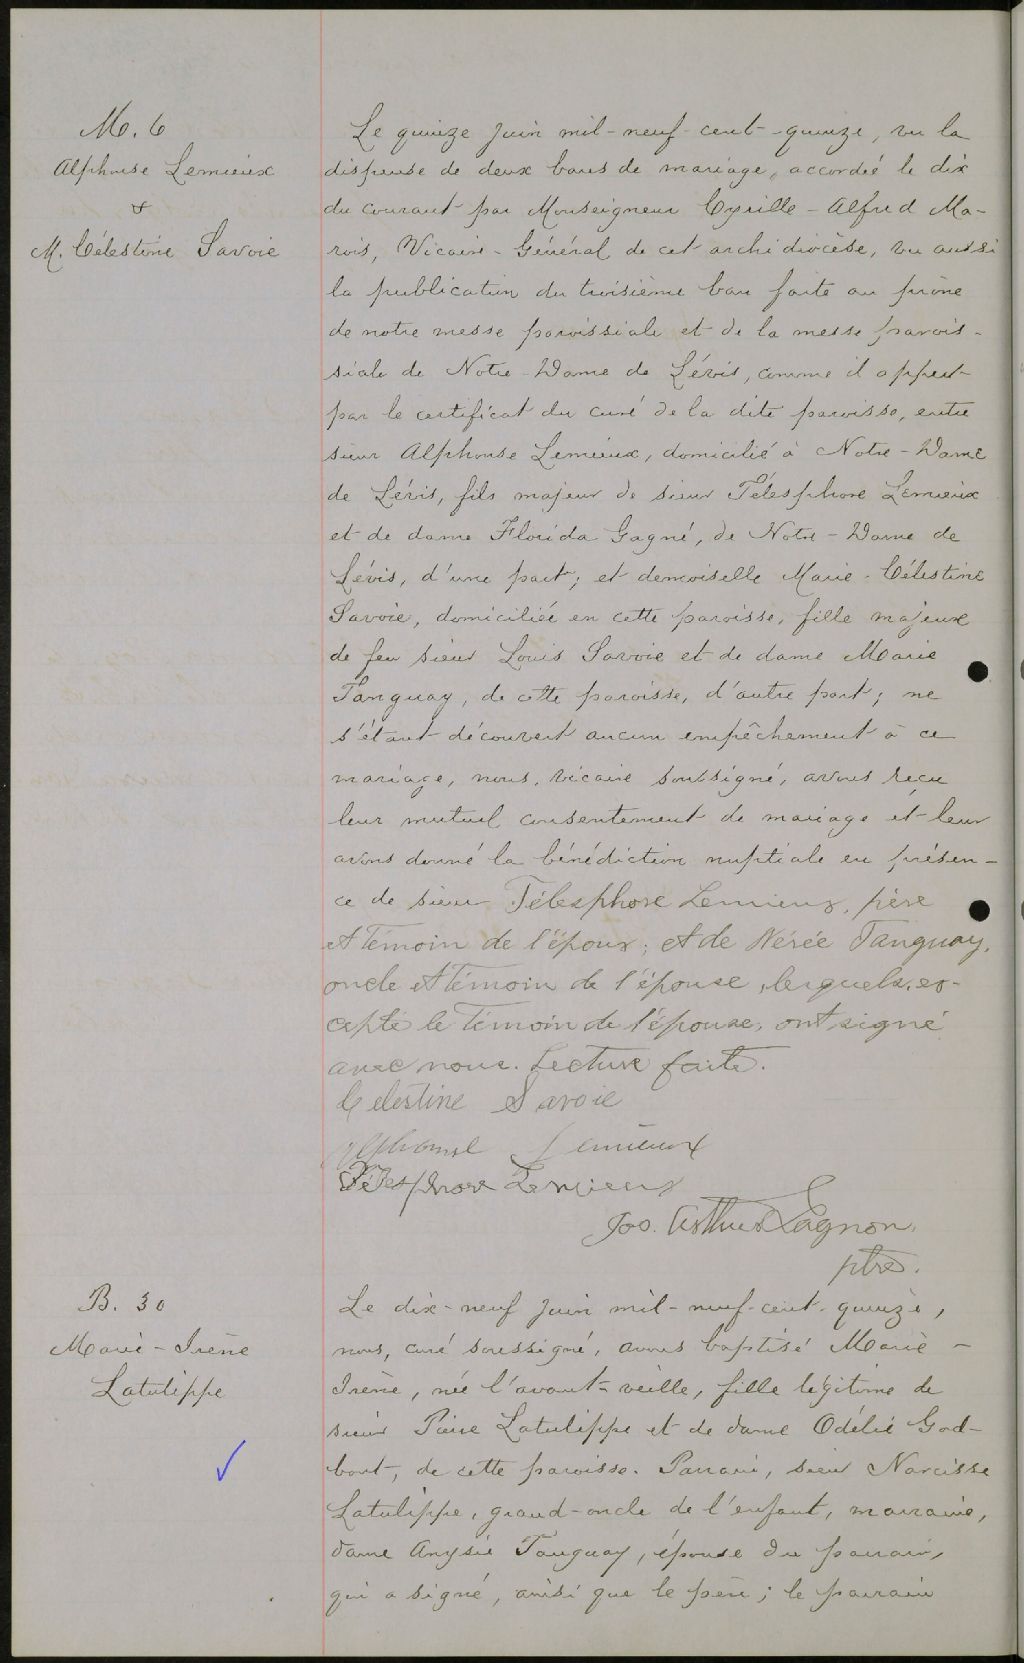 M. 6
Alphonse Lemieux
&
M. Célestine Savoie
Le quinze juin mil-neuf-cent-quinze, vu la
dispense de deux bans de mariage, accordée le dix
du courant par Monseigneur Cyrille-Alfred Ma-
rois, Vicaire-Général de cet archidiocèse, vu aussi
la publication du troisième ban faite au prône
de notre messe paroissiale et de la messe parois-
siale de Notre-Dame de Lévis, comme il appert
par le certificat du curé de la dite paroisse, entre
sieur Alphonse Lemieux, domicilié à Notre-Dame
de Lévis, fils majeur de sieur Télesphore Lemieux
et de dame Florida Gagné, de Notre-Dame de
Lévis, d'une part; et demoiselle Marie-Célestine
Savoie, domiciliée en cette paroisse, fille majeure
de feu sieur Louis Savoie et de dame Marie
Tanguay, de cette paroisse, d'autre part; ne
s'étant découvert aucun empêchement à ce
mariage, nous, vicaire soussigné, avons reçu
leur mutuel consentement de mariage et leur
avons donné la bénédiction nuptiale en présen-
ce de sieur Télesphore Lemieux, père
et témoin de l'époux; et de Nérée Tanguay,
oncle et témoin de l'épouse, lesquels, ex-
cepté le témoin de l'épouse, ont signé
avec nous. Lecture faite.
Celestine Savoie
Alphonse Lemieux
Télesphore Lemieux
Jos. Arthur Gagnon
ptre.
B. 30
Marie-Irène
Latulippe
Le dix-neuf juin mil-neuf-cent-quinze,
nous, curé soussigné, avons baptisé Marie-
Irène, née l'avant-veille, fille légitime de
sieur Pierre Latulippe et de dame Odélie God-
bout, de cette paroisse. Parrain, sieur Narcisse
Latulippe, grand-oncle de l'enfant, marraine,
dame Anysie Tanguay, épouse du parrain,
qui a signé, ainsi que le père; le parrain